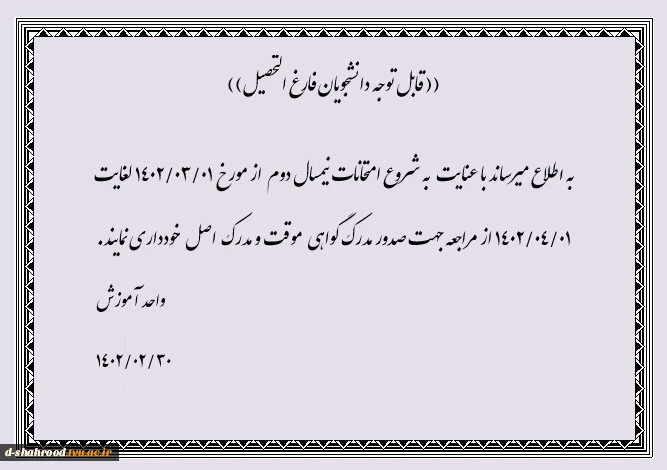 ((قابل توجه دانشجویان فارغ التحصیل))
به اطلاع میرساند با عنایت به شروع امتحانات نیمسال دوم از مورخ ۱۴۰۲/۰۳/۰۱ لغایت
۱۴۰۲/۰۴/۰۱ از مراجعه جهت صدور مدرک گواهی موقت و مدرک اصل خودداری نمایند.
واحد آموزش
۱۴۰۲/۰۲/۳۰
d-shahrood.tvu.ac.ir